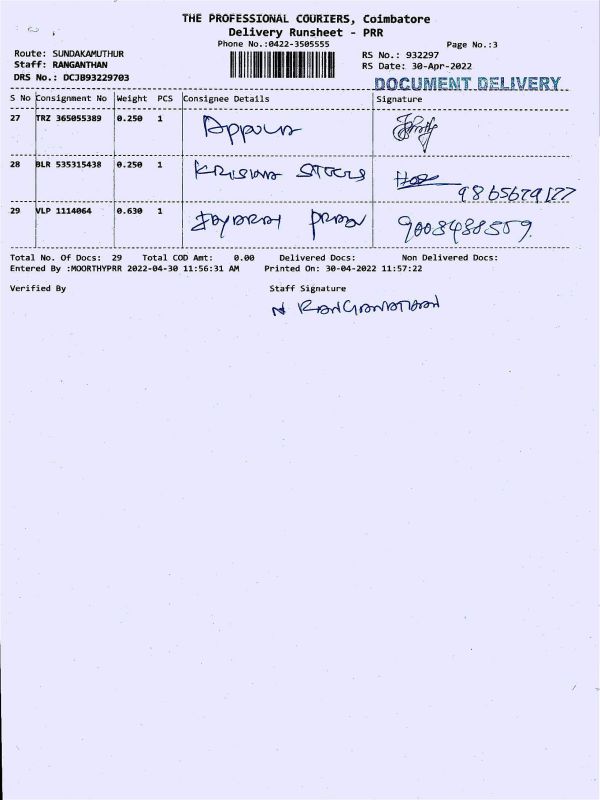 THE PROFESSIONAL COURIERS, Coimbatore
Delivery Runsheet - PRR
Phone No.:0422-3505555
Page No.:3
Route: SUNDAKAMUTHUR
RS No.: 932297
Staff: RANGANTHAN
RS Date: 30-Apr-2022
DRS No.: DCJB93229703
DOCUMENT DELIVERY
S No Consignment No Weight PCS Consignee Details Signature
27 TRZ 365055389 0.250 1
28 BLR 535315438 0.250 1 KRISHNA STEELS
29 VLP 1114064 0.630 1
Total No. Of Docs: 29 Total COD Amt: 0.00 Delivered Docs: Non Delivered Docs:
Entered By :MOORTHYPRR 2022-04-30 11:56:31 AM Printed On: 30-04-2022 11:57:22
Verified By Staff Signature
N RANGANATHAN